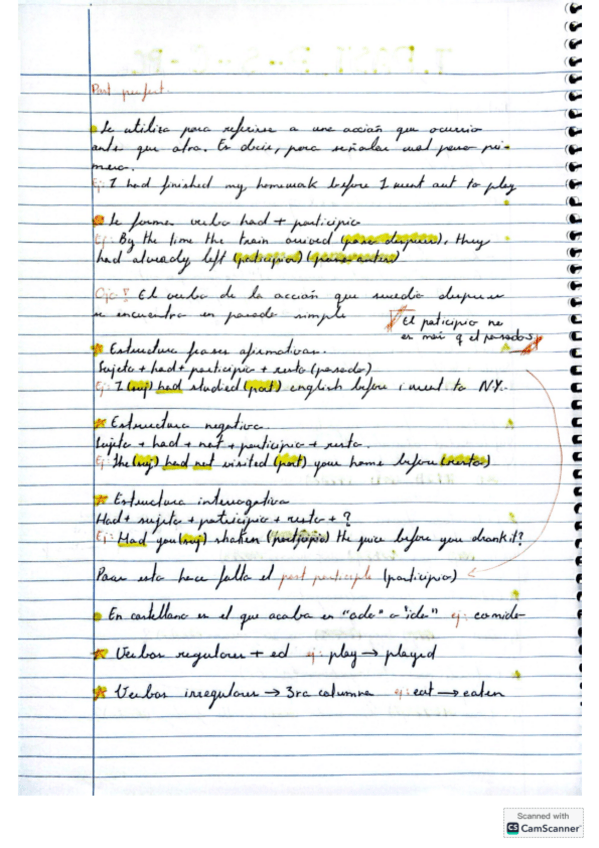 Past perfect.
Se utiliza para referirse a una acción que ocurrio
antes que otra. Es decir, para señalar cual paso pri-
mera.
Ej: I had finished my homework before I went out to play
Se forma: verbo had + participio
Ej: By the time the train arrived (paso despues), they
had already left (participio) (paso antes)
Ojo! El verbo de la acción que sucedio despues
se encuentra en pasado simple
El participio no
es más q el pasado
Estructura frases afirmativas.
Sujeto + had + participio + resto (pasado)
Ej: I (suj) had studied (part) english before i went to N.Y.
Estructura negativa.
Sujeto + had + not + participio + resto.
Ej: She (suj) had not visited (part) your home before (resto)
Estructura interrogativa
Had + sujeto + participio + resto + ?
Ej: Had you (suj) shaken (participio) the juice before you drank it?
Para esto hace falta el past participle (participio)
En castellano es el que acaba en "ado" o "ido" ej: comido
Verbos regulares + ed ej: play → played
Verbos irregulares → 3ra columna ej: eat → eaten
Scanned with
CS CamScanner